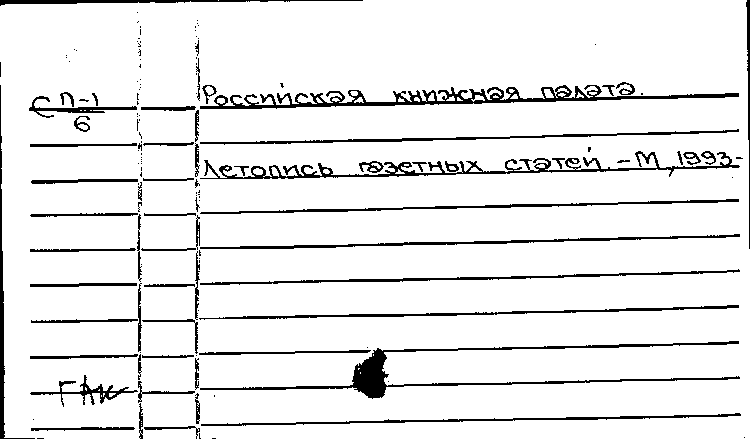 С П-1
6
Российская книжная палата.
Летопись газетных статей. – М, 1993-
ГАК